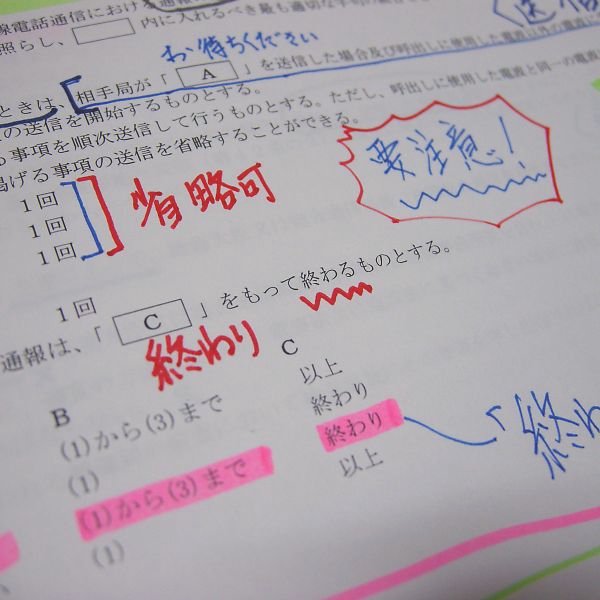 線電話通信における通報
照らし、 内に入れるべき最も適切な字句の
お待ちください
ときは、相手局が「 A 」を送信した場合及び呼出しに使用した電波以外の電波に
の送信を開始するものとする。
る事項を順次送信して行うものとする。ただし、呼出しに使用した電波と同一の電波
掲げる事項の送信を省略することができる。
要注意!
1回
1回
1回
省略可
1回
通報は、「 C 」をもって終わるものとする。
終わり
B C
(1)から(3)まで 以上
(1) 終わり
(1)から(3)まで 終わり
(1) 以上
「終わ